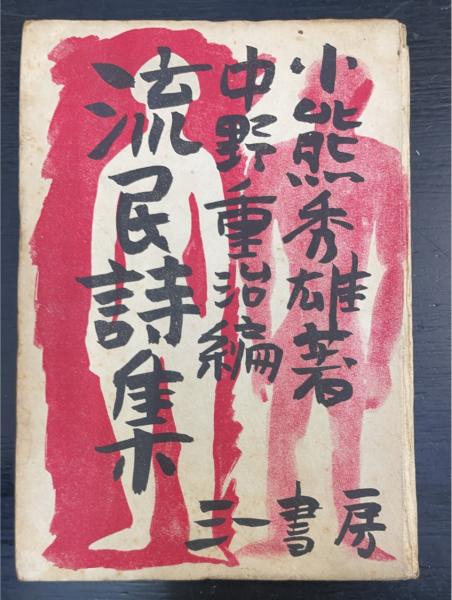 小熊秀雄著
中野重治編
流民詩集
三一書房